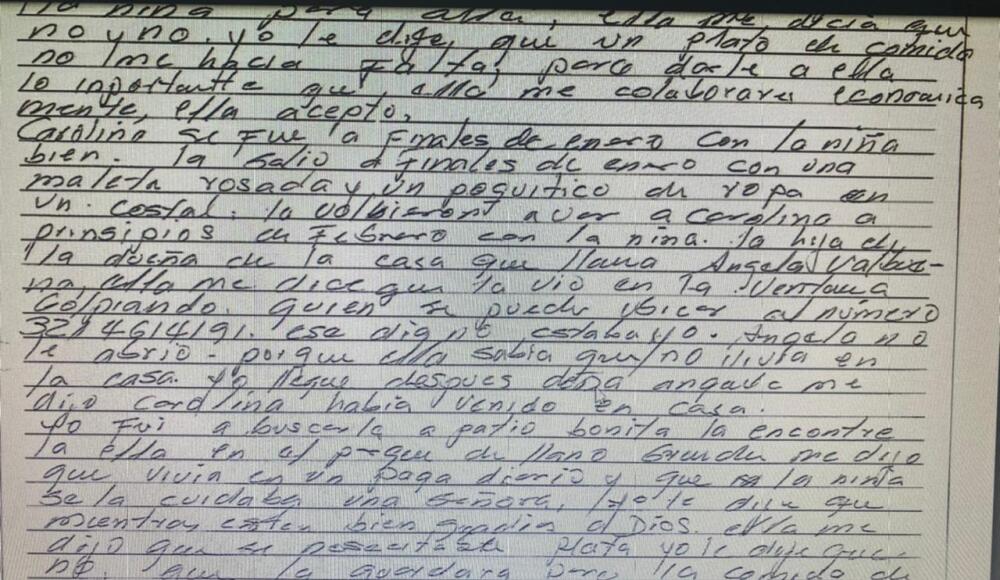 la niña para alla, ella me decia que
no y no. yo le dige, que un plato de comida
no me hacia falta, para darle a ella
lo inportante que, ella me colaborara economica
mente, ella acepto,
Carolina se fue a finales de enero con la niña
bien. la salio a finales de enero con una
maleta rosada y un poquitico de ropa en
un costal, la volbieron a ver a Carolina a
prinsipios de Febrero con la niña. la hija de
la dueña de la casa que llama Angela Valbue-
na, ella me dice que la vio en la ventana
golpiando, quien se puede ubicar al número
3214614191. ese dia no estaba yo. Angela no
le abrio - porque ella sabia que no vivia en
la casa. yo llegue despues
dijo Carolina habia venido en casa.
yo fui a buscarla a patio bonita la encontre
la ella en el parque de llano Grande me dijo
que vivia en un paga diario y que la niña
se la cuidaba una señora, yo le dije que
mientras esten bien gracias a Dios. ella me
dijo que se plata yo le dije que.
no. que la guardara para la comida de